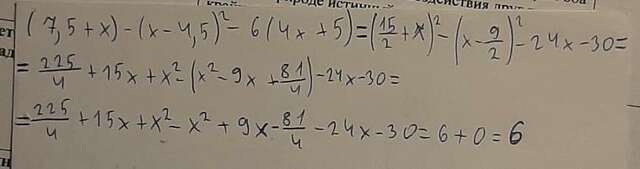 (7,5+x)-(x-4,5)²-6(4x+5)=(15/2+x)²-(x-9/2)²-24x-30=
=225/4+15x+x²-(x²-9x+81/4)-24x-30=
=225/4+15x+x²-x²+9x-81/4-24x-30=6+0=6